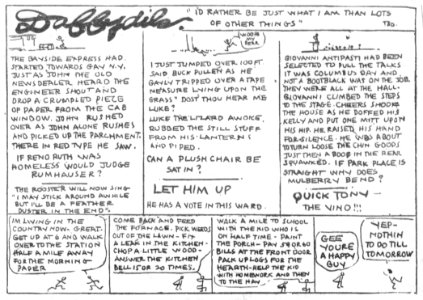 Daffydils.
"I'D RATHER BE JUST WHAT I AM THAN LOTS
OF OTHER THINGS"
TAD.
THE BAYSIDE EXPRESS HAD
STARTED TOWARDS GAY N.Y.
JUST AS JOHN THE OLD
NEWS DEALER HEARD THE
ENGINEER SHOUT AND
DROP A CRUMBLED PIECE
OF PAPER FROM THE CAB
WINDOW. JOHN RUSHED
OVER AS JOHN ALONE RUSHES
AND PICKED UP THE PARCHMENT.
THERE IN RED TYPE HE SAW.
IF RENO RUTH WAS
HOMELESS WOULD JUDGE
RUMHAUSER?
THE ROOSTER WILL NOW SING
"I MAY STICK AROUND AWHILE
BUT I'LL BE A FEATHER
DUSTER IN THE END"
I JUST JUMPED OVER 100 FT
SAID BUCK PILLEY AS HE
GAYLY TRIPPED OVER A TAPE
MEASURE LYING UPON THE
GRASS" DOST THOU HEAR ME
LUKE?
LUKE THE LIZARD AWOKE,
RUBBED THE STILL STUFF
FROM HIS LANTERNS
AND PIPED.
CAN A PLUSH CHAIR BE
SAT IN?
LET HIM UP
HE HAS A VOTE IN THIS WARD.
GIOVANNI ANTIPASTI HAD BEEN
SELECTED TO PULL THE TALKS
IT WAS COLUMBUS DAY AND
NOT A BOOTBLACK WAS ON THE JOB
THEY WERE ALL AT THE HALL.
GIOVANNI CLIMBED THE STEPS
TO THE STAGE. CHEERS SHOOK
THE HOUSE AS HE DOFFED HIS
KELLY AND PUT ONE MITT UPON
HIS HIP. HE RAISED HIS HAND
FOR SILENCE. HE WAS ABOUT
TO TURN LOOSE THE CHIN GOODS
JUST THEN A BOOB IN THE REAR
SQUAWKED. IF PARK PLACE IS
STRAIGHT WHY DOES
MULBERRY BEND?
QUICK TONY —
THE VINO!!!
IM LIVING IN THE
COUNTRY NOW. GREAT.
GET UP AT 6 AND WALK
OVER TO THE STATION
HALF A MILE AWAY
FOR THE MORNING
PAPER
COME BACK AND FEED
THE FURNACE. PICK WEEDS
OUT OF THE LAWN — FIX
A LEAK IN THE KITCHEN
CHOP A LITTLE WOOD —
ANSWER THE KITCHEN
BELLS FOR 20 TIMES.
WALK A MILE TO SCHOOL
WITH THE KID WHO IS
ON HALF TIME - PAINT
THE PORCH - PAY 5 OR 60
BILLS AT THE FRONT DOOR
PACK UP LOGS FOR THE
HEARTH - HELP THE KID
WITH HOMEWORK AND THEN
TO THE HAY
GEE
YOU'RE
A HAPPY
GUY
YEP-
NOTHIN
TO DO TILL
TOMORROW